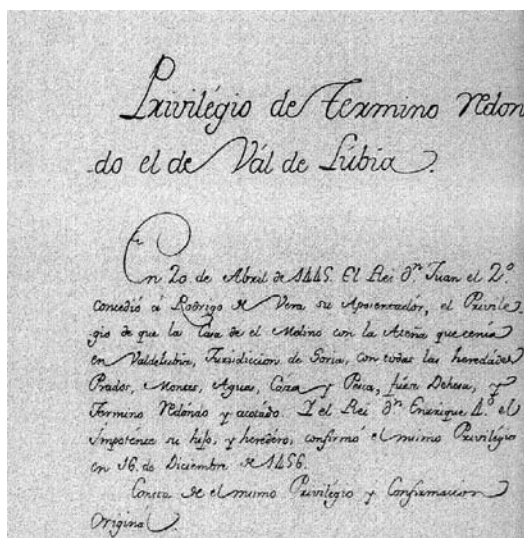 Privilégio de Termino Redon
do el de Vál de Lúbia.
En 20 de Abril de 1445. El Rei Dn. Juan el 2º.
Concedió á Rodrigo de Vera su Aposentador, el Privile
gio de que la Casa de el Molino con la Azeña que tenia
en Valdelubia, Jurisdiccion de Soria, con todas las heredades
Prados, Montes, Aguas, Caza y Pesca, fuese Dehesa, y
Termino Redóndo y acotádo. Y el Rei Dn. Enrique 4º. el
Impotente su hijo, y heredero, confirmó el mismo Privilégio
en 16 de Diciembre de 1456.
Consta de el mismo Privilégio y Confirmacion
Original